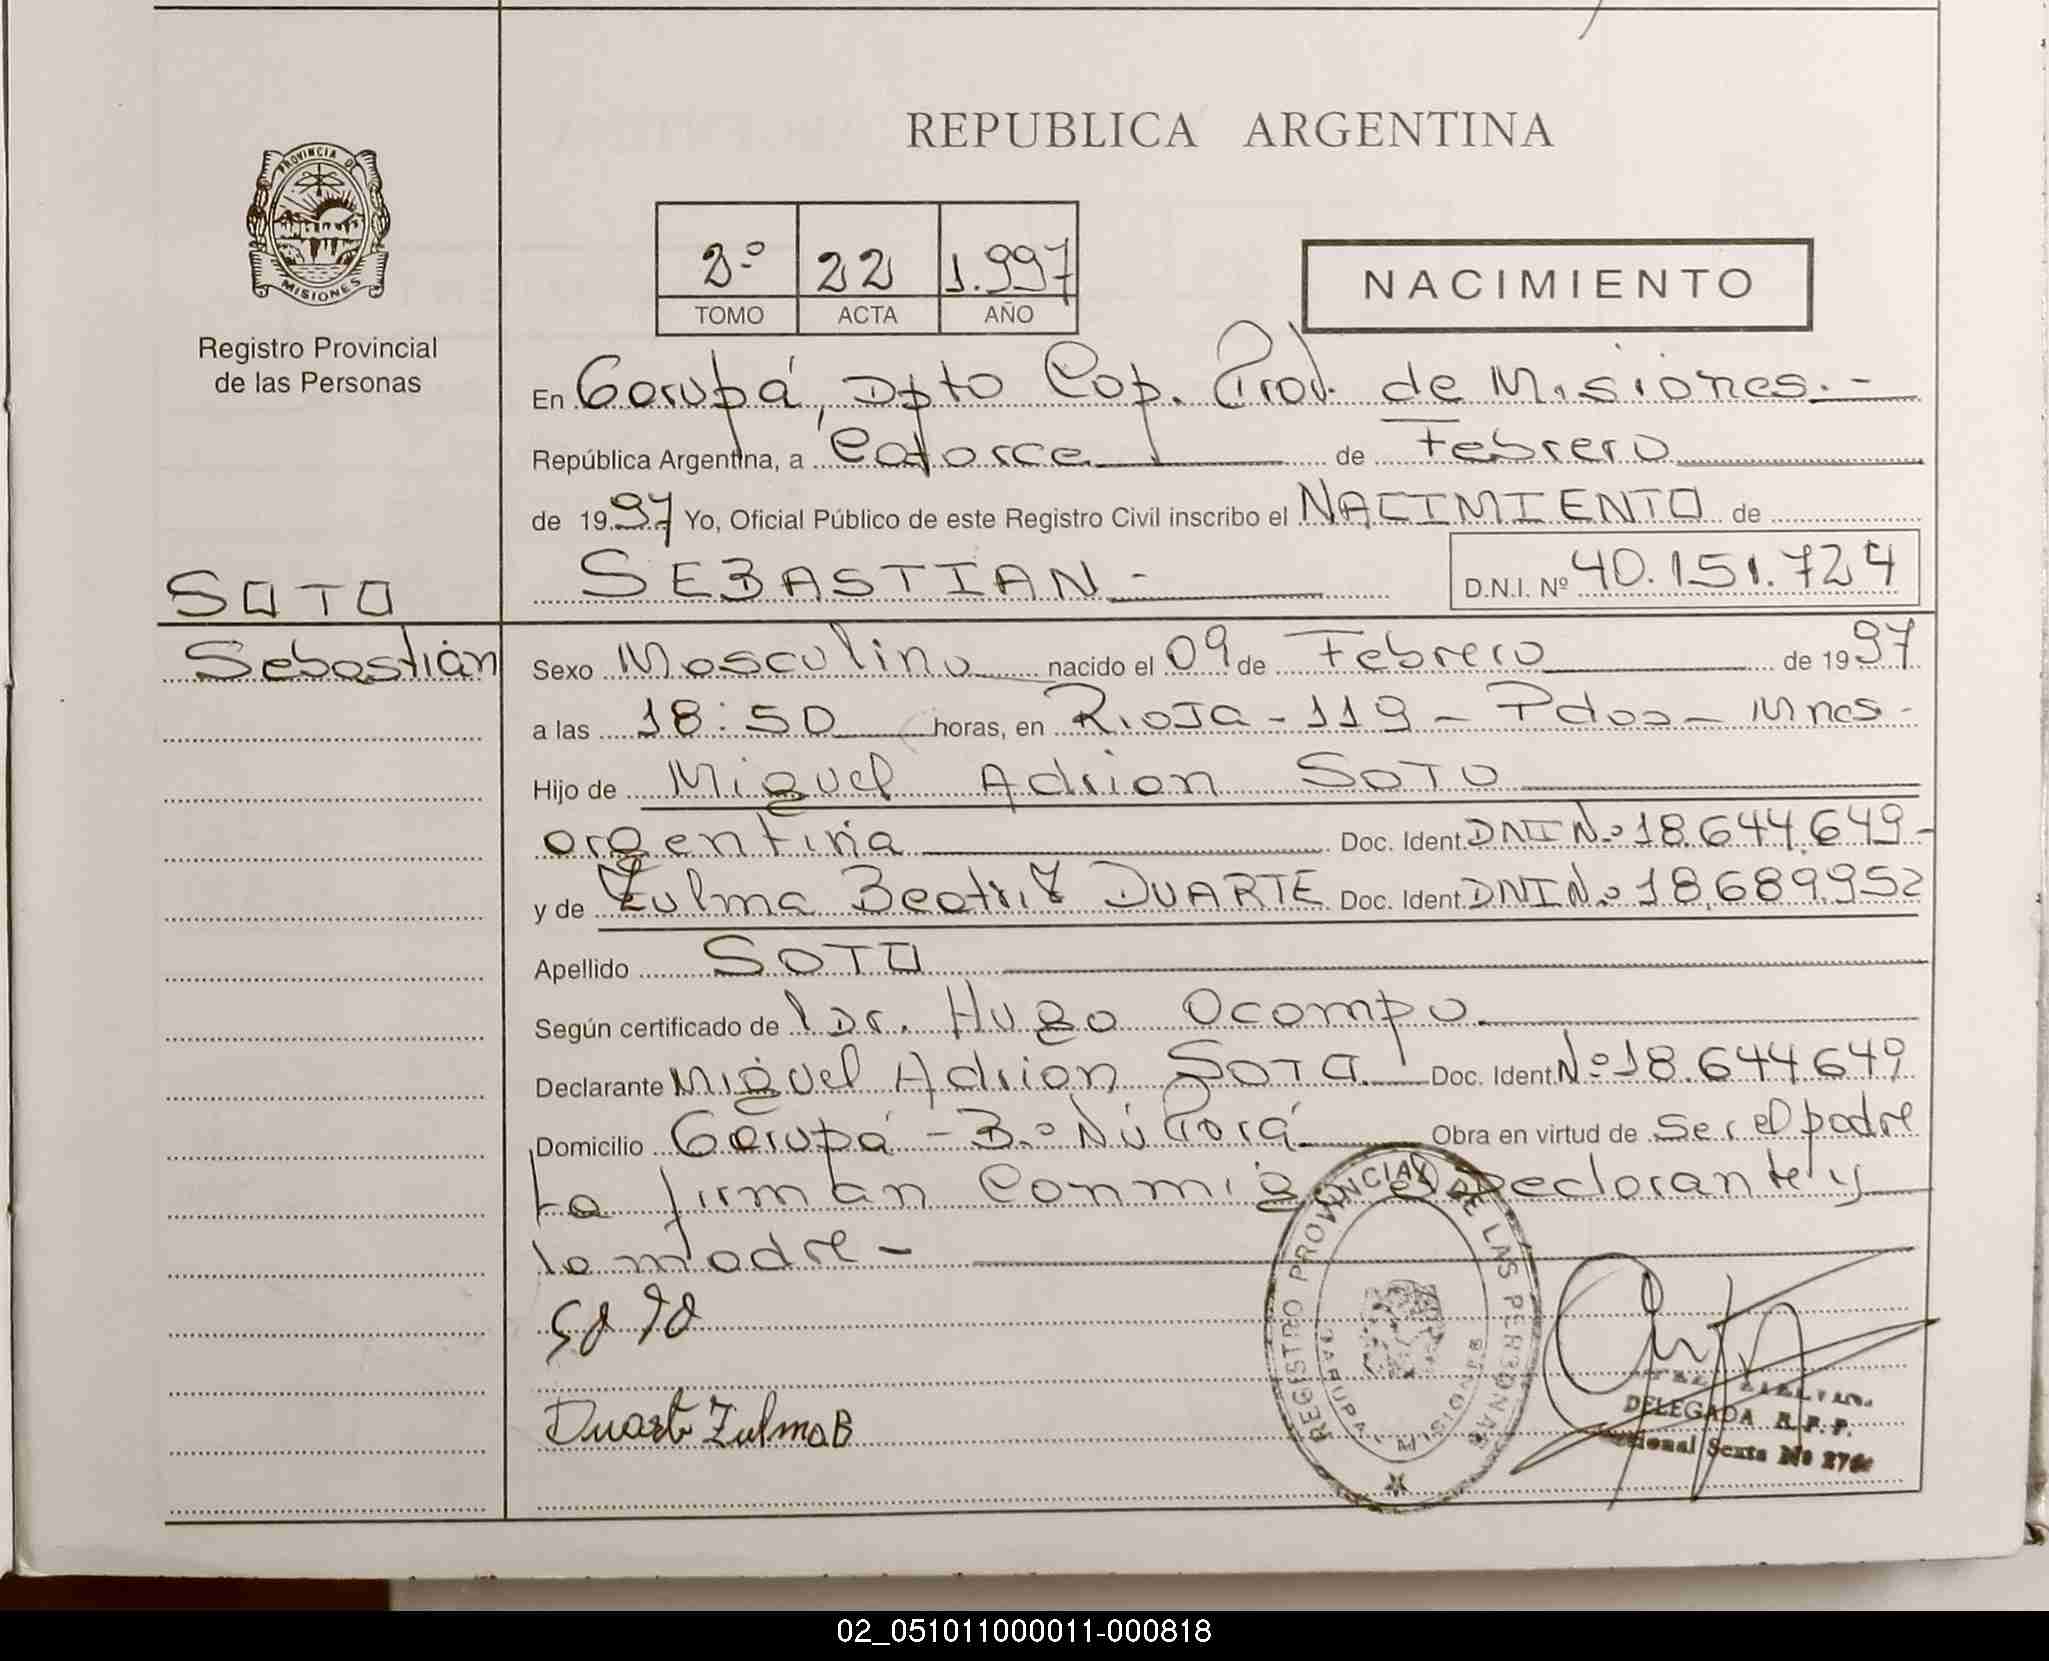 REPUBLICA ARGENTINA
PROVINCIA DE
MISIONES
Registro Provincial
de las Personas
2º 22 1.997
TOMO ACTA AÑO
NACIMIENTO
En Garupá, Dpto Cap. Prov. de Misiones.-
República Argentina, a Catorce de Febrero
de 1997 Yo, Oficial Público de este Registro Civil inscribo el NACIMIENTO de
SEBASTIAN - D.N.I. Nº 40.151.724
SOTO
Sebastián
Sexo Masculino nacido el 09 de Febrero de 1997
a las 18:50 horas, en Rioja - 119 - Pdas - Mnes -
Hijo de Miguel Adrian SOTO
argentina Doc. Ident. DNI Nº 18.644.649-
y de Zulma Beatriz DUARTE Doc. Ident. DNI Nº 18.689.952
Apellido SOTO
Según certificado de Dr. Hugo Ocampo
Declarante Miguel Adrian SOTO Doc. Ident. Nº 18.644649
Domicilio Garupá - Bº Ñú Porá Obra en virtud de Ser el padre
La firman Conmigo el Declarante y
la madre -
SOTO
Duarte Zulma B
REGISTRO PROVINCIAL DE LAS PERSONAS
GARUPA MISIONES
DELEGADA R.P.P.
Sexta Nº
02_051011000011-000818